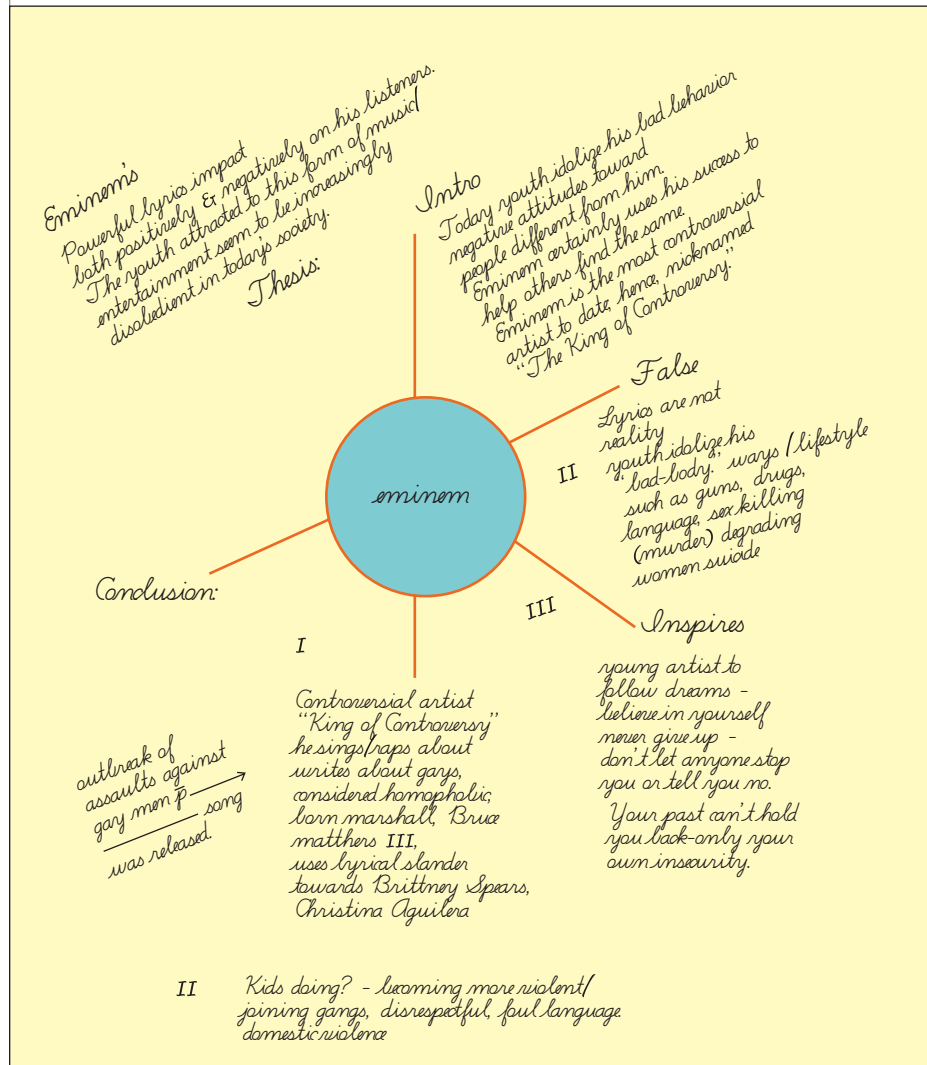 Eminem's
Powerful lyrics impact
both positively & negatively on his listeners.
The youth attracted to this form of music/
entertainment seem to be increasingly
disobedient in today's society.
Thesis:
Intro
Today youth idolize his bad behavior
negative attitudes toward
people different from him.
Eminem certainly uses his success to
help others find the same.
Eminem is the most controversial
artist to date, hence, nicknamed
"The King of Controversy."
False
Lyrics are not
reality
youth idolize his
"bad-body." ways / lifestyle
such as guns, drugs,
language, sex killing
(murder) degrading
women suicide
II
eminem
Conclusion:
III
Inspires
young artist to
follow dreams -
believe in yourself
never give up -
don't let anyone stop
you or tell you no.
Your past can't hold
you back-only your
own insecurity.
I
Controversial artist
"King of Controversy"
he sings/raps about
writes about gays,
considered homophobic,
born marshall, Bruce
matthers III,
uses lyrical slander
towards Brittney Spears,
Christina Aguilera
outbreak of
assaults against
gay men p̄
song
was released.
II Kids doing? - becoming more violent/
joining gangs, disrespectful, foul language
domestic violence